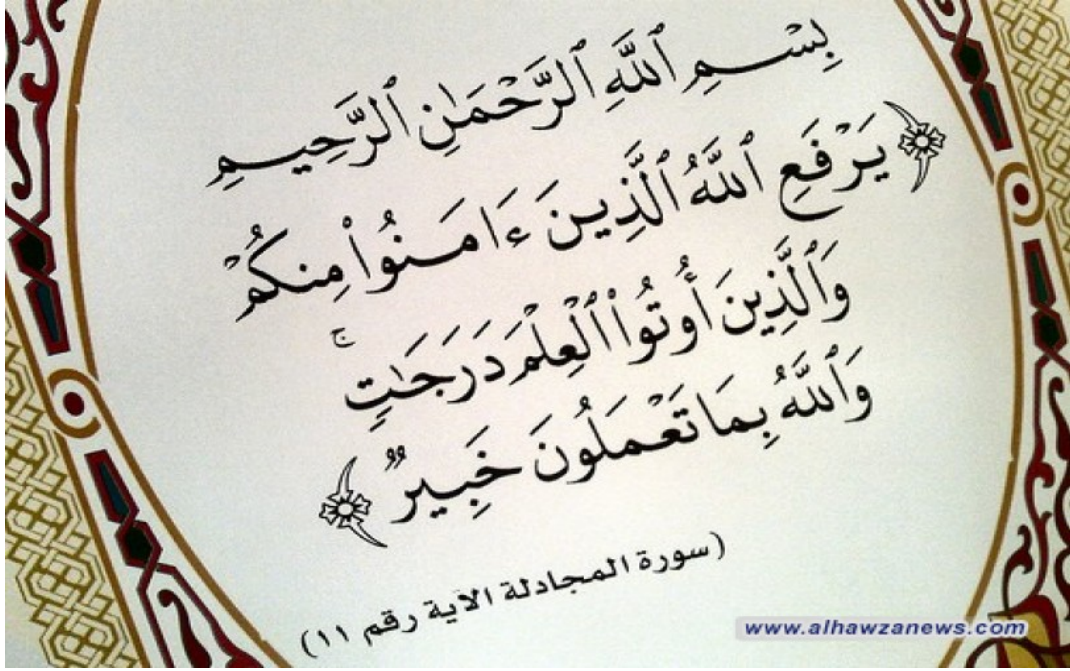 بِسْمِ ٱللَّهِ ٱلرَّحْمَٰنِ ٱلرَّحِيمِ
﴿يَرْفَعِ ٱللَّهُ ٱلَّذِينَ ءَامَنُوا۟ مِنكُمْ
وَٱلَّذِينَ أُوتُوا۟ ٱلْعِلْمَ دَرَجَٰتٍ ۚ
وَٱللَّهُ بِمَا تَعْمَلُونَ خَبِيرٌ﴾
(سورة المجادلة الآية رقم ١١)
www.alhawzanews.com